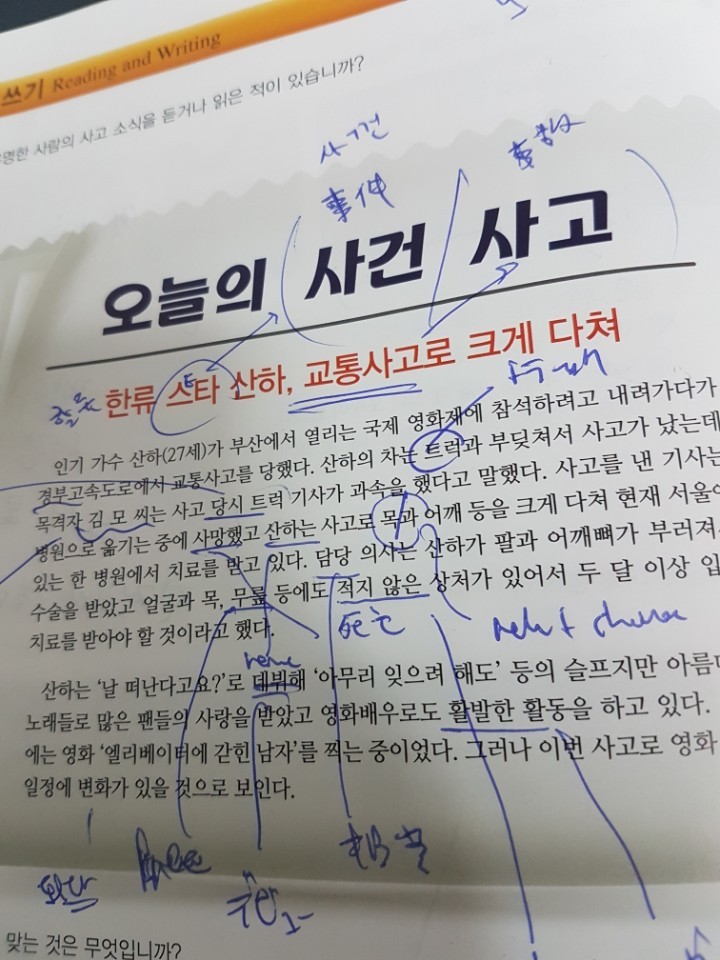 쓰기 Reading and Writing
명한 사람의 사고 소식을 듣거나 읽은 적이 있습니까?
사건
事件
오늘의 사건 사고
한류 스타 산하, 교통사고로 크게 다쳐
인기 가수 산하(27세)가 부산에서 열리는 국제 영화제에 참석하려고 내려가다가
경부고속도로에서 교통사고를 당했다. 산하의 차는 트럭과 부딪쳐서 사고가 났는데
목격자 김 모 씨는 사고 당시 트럭 기사가 과속을 했다고 말했다. 사고를 낸 기사는
병원으로 옮기는 중에 사망했고 산하는 사고로 목과 어깨 등을 크게 다쳐 현재 서울에
있는 한 병원에서 치료를 받고 있다. 담당 의사는 산하가 팔과 어깨뼈가 부러져서
수술을 받았고 얼굴과 목, 무릎 등에도 적지 않은 상처가 있어서 두 달 이상 입
치료를 받아야 할 것이라고 했다.
死亡
산하는 ‘날 떠난다고요?’로 데뷔해 ‘아무리 잊으려 해도’ 등의 슬프지만 아름다
노래들로 많은 팬들의 사랑을 받았고 영화배우로도 활발한 활동을 하고 있다.
에는 영화 ‘엘리베이터에 갇힌 남자’를 찍는 중이었다. 그러나 이번 사고로 영화
일정에 변화가 있을 것으로 보인다.
맞는 것은 무엇입니까?